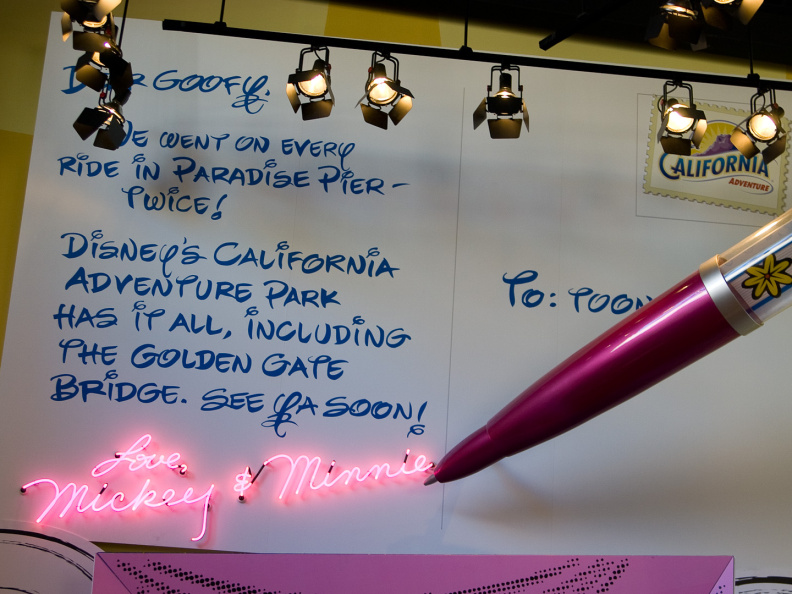 Dear Goofy,
We went on every
ride in Paradise Pier –
twice!
Disney's California
Adventure Park
has it all, including
the Golden Gate
Bridge. See ya soon!
Love,
Mickey & Minnie
CALIFORNIA
ADVENTURE
To: